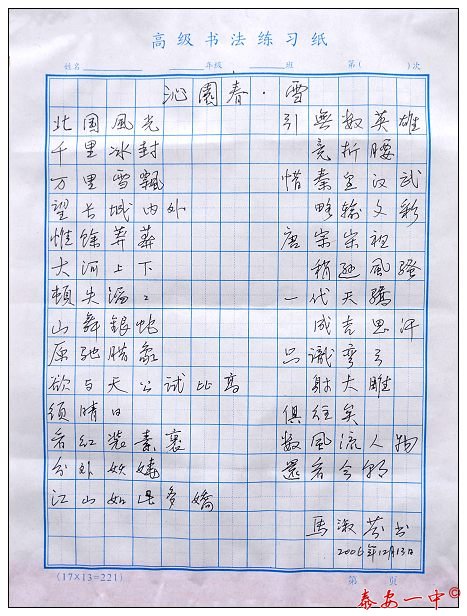 高级书法练习纸
姓名 年级 班 第( )次
沁園春·雪
北国風光
千里冰封
万里雪飄
望长城内外
惟餘莽莽
大河上下
頓失滔々
山舞銀蛇
原驰腊象
欲与天公試比高
须晴日
看红装素裹
分外妖娆
江山如此多嬌
引無数英雄
竞折腰
惜秦皇汉武
略输文彩
唐宗宋祖
稍逊風騷
一代天驕
成吉思汗
只識彎弓
射大雕
俱往矣
数風流人物
還看今朝
馬淑芬书
2006年12月13日
(17×13=221) 第 页
泰安一中©